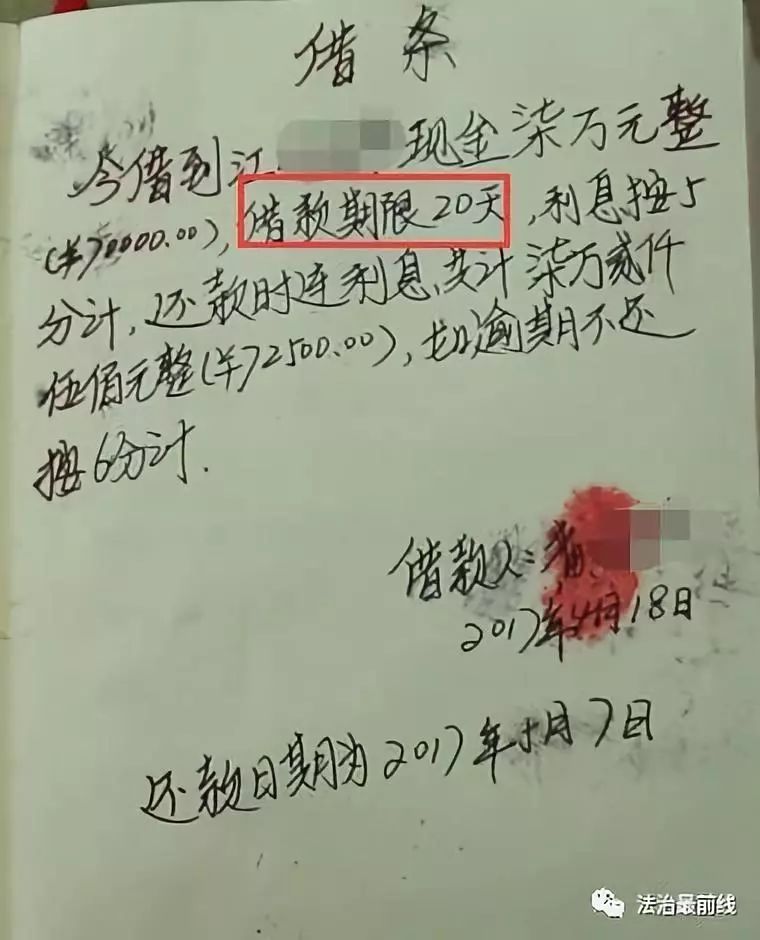 借条
今借到江 现金柒万元整
(¥70000.00),借款期限20天,利息按5
分计,还款时连利息,共计柒万贰仟
伍佰元整(¥72500.00),如逾期不还
按6分计.
借款人:
2017年4月18日
还款日期为2017年5月7日
法治最前线